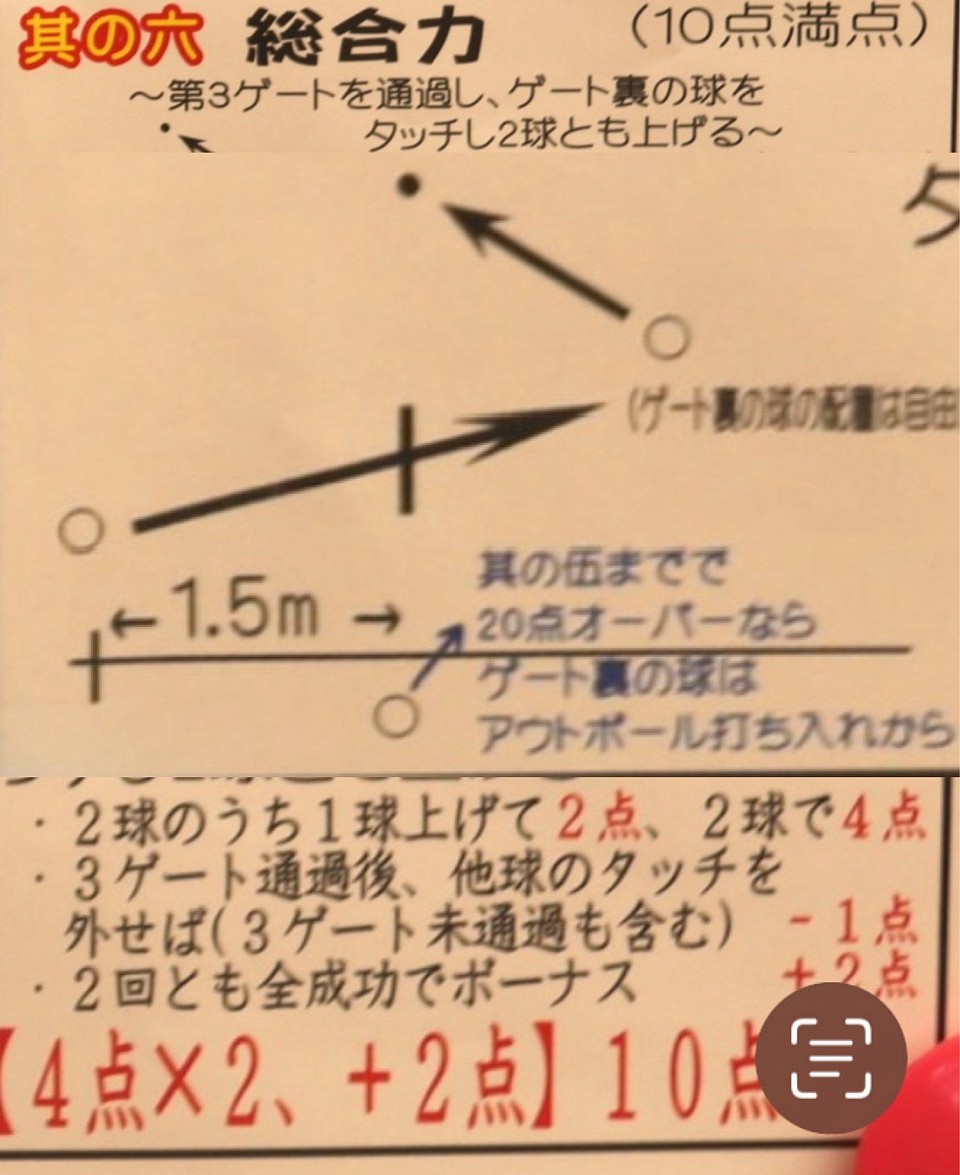 其の六 総合力 (10点満点)
～第3ゲートを通過し、ゲート裏の球を
タッチし2球とも上げる～
タ
(ゲート裏の球の配置は自由
←1.5m→
其の伍までで
20点オーバーなら
ゲート裏の球は
アウトボール打ち入れから
・2球のうち1球上げて2点、2球で4点
・3ゲート通過後、他球のタッチを
外せば(3ゲート未通過も含む) -1点
・2回とも全成功でボーナス +2点
【4点×2、+2点】10点